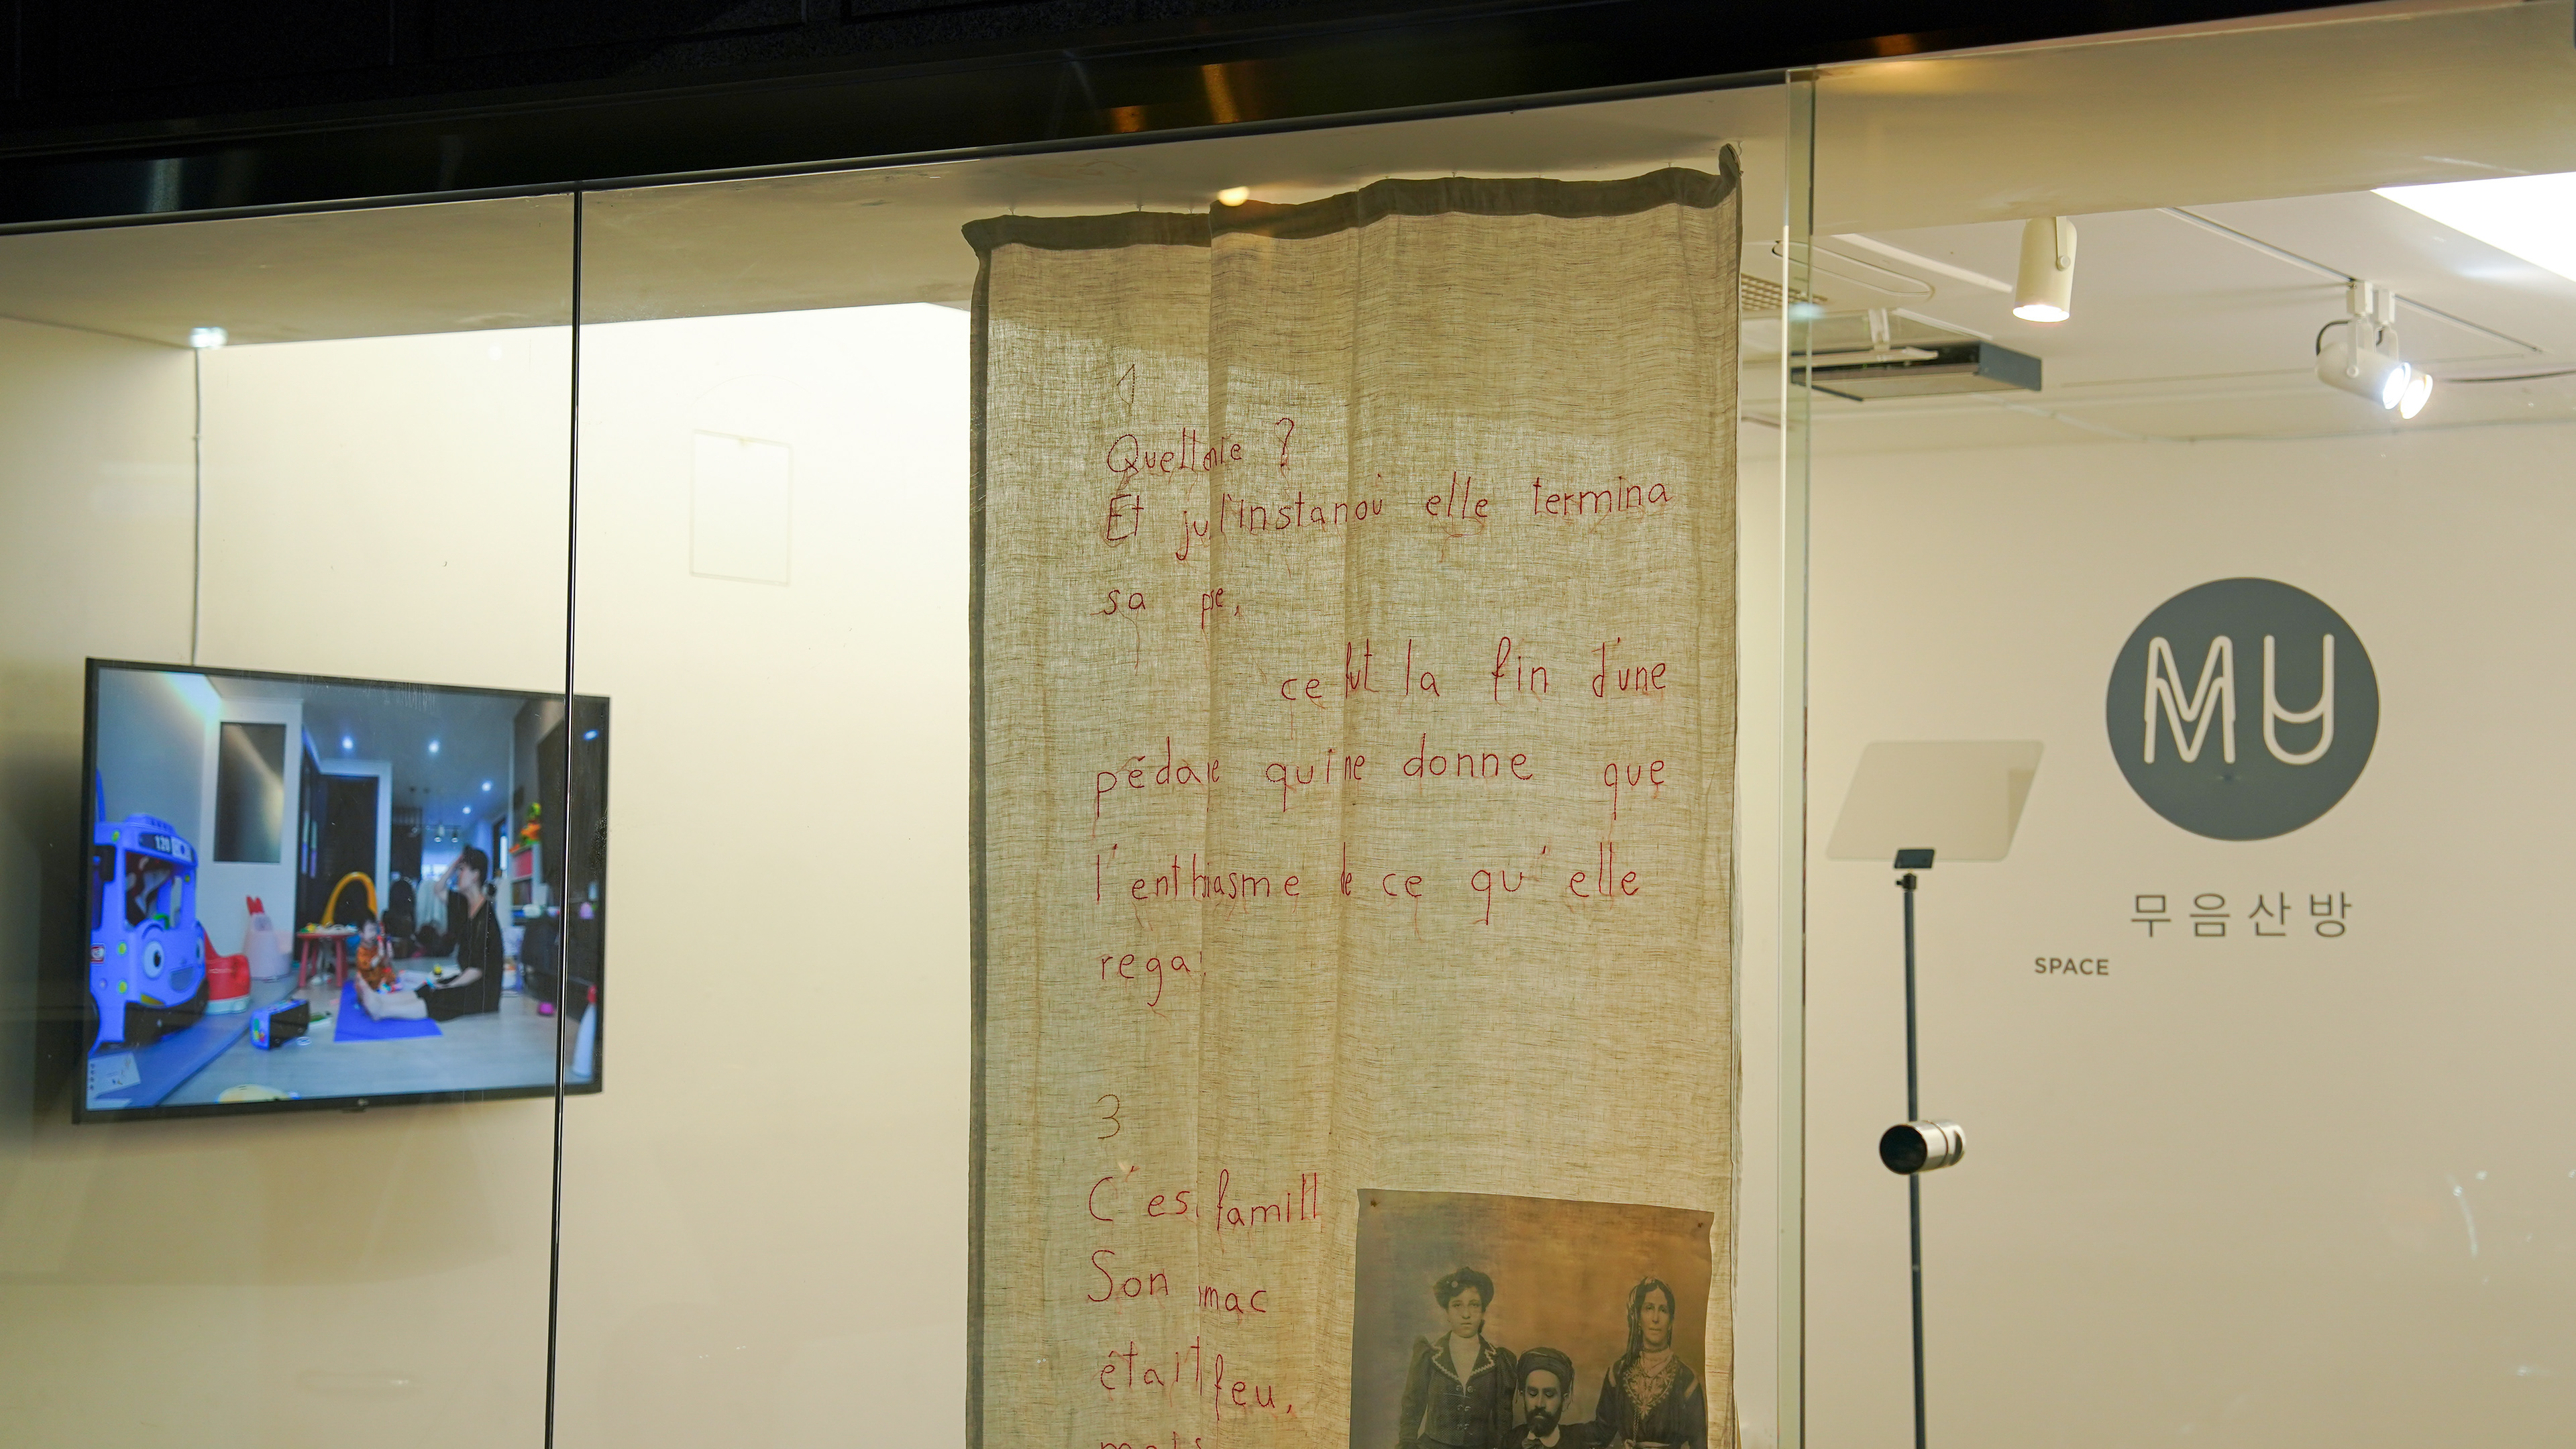 120
1
?
Et elle termina
sa pe,
ce fut la fin d'une
pédale qui ne donne que
l'enthiasme de ce qu'elle
rega
3
C'es famill
Son mac
était feu,
MU
무음산방
SPACE